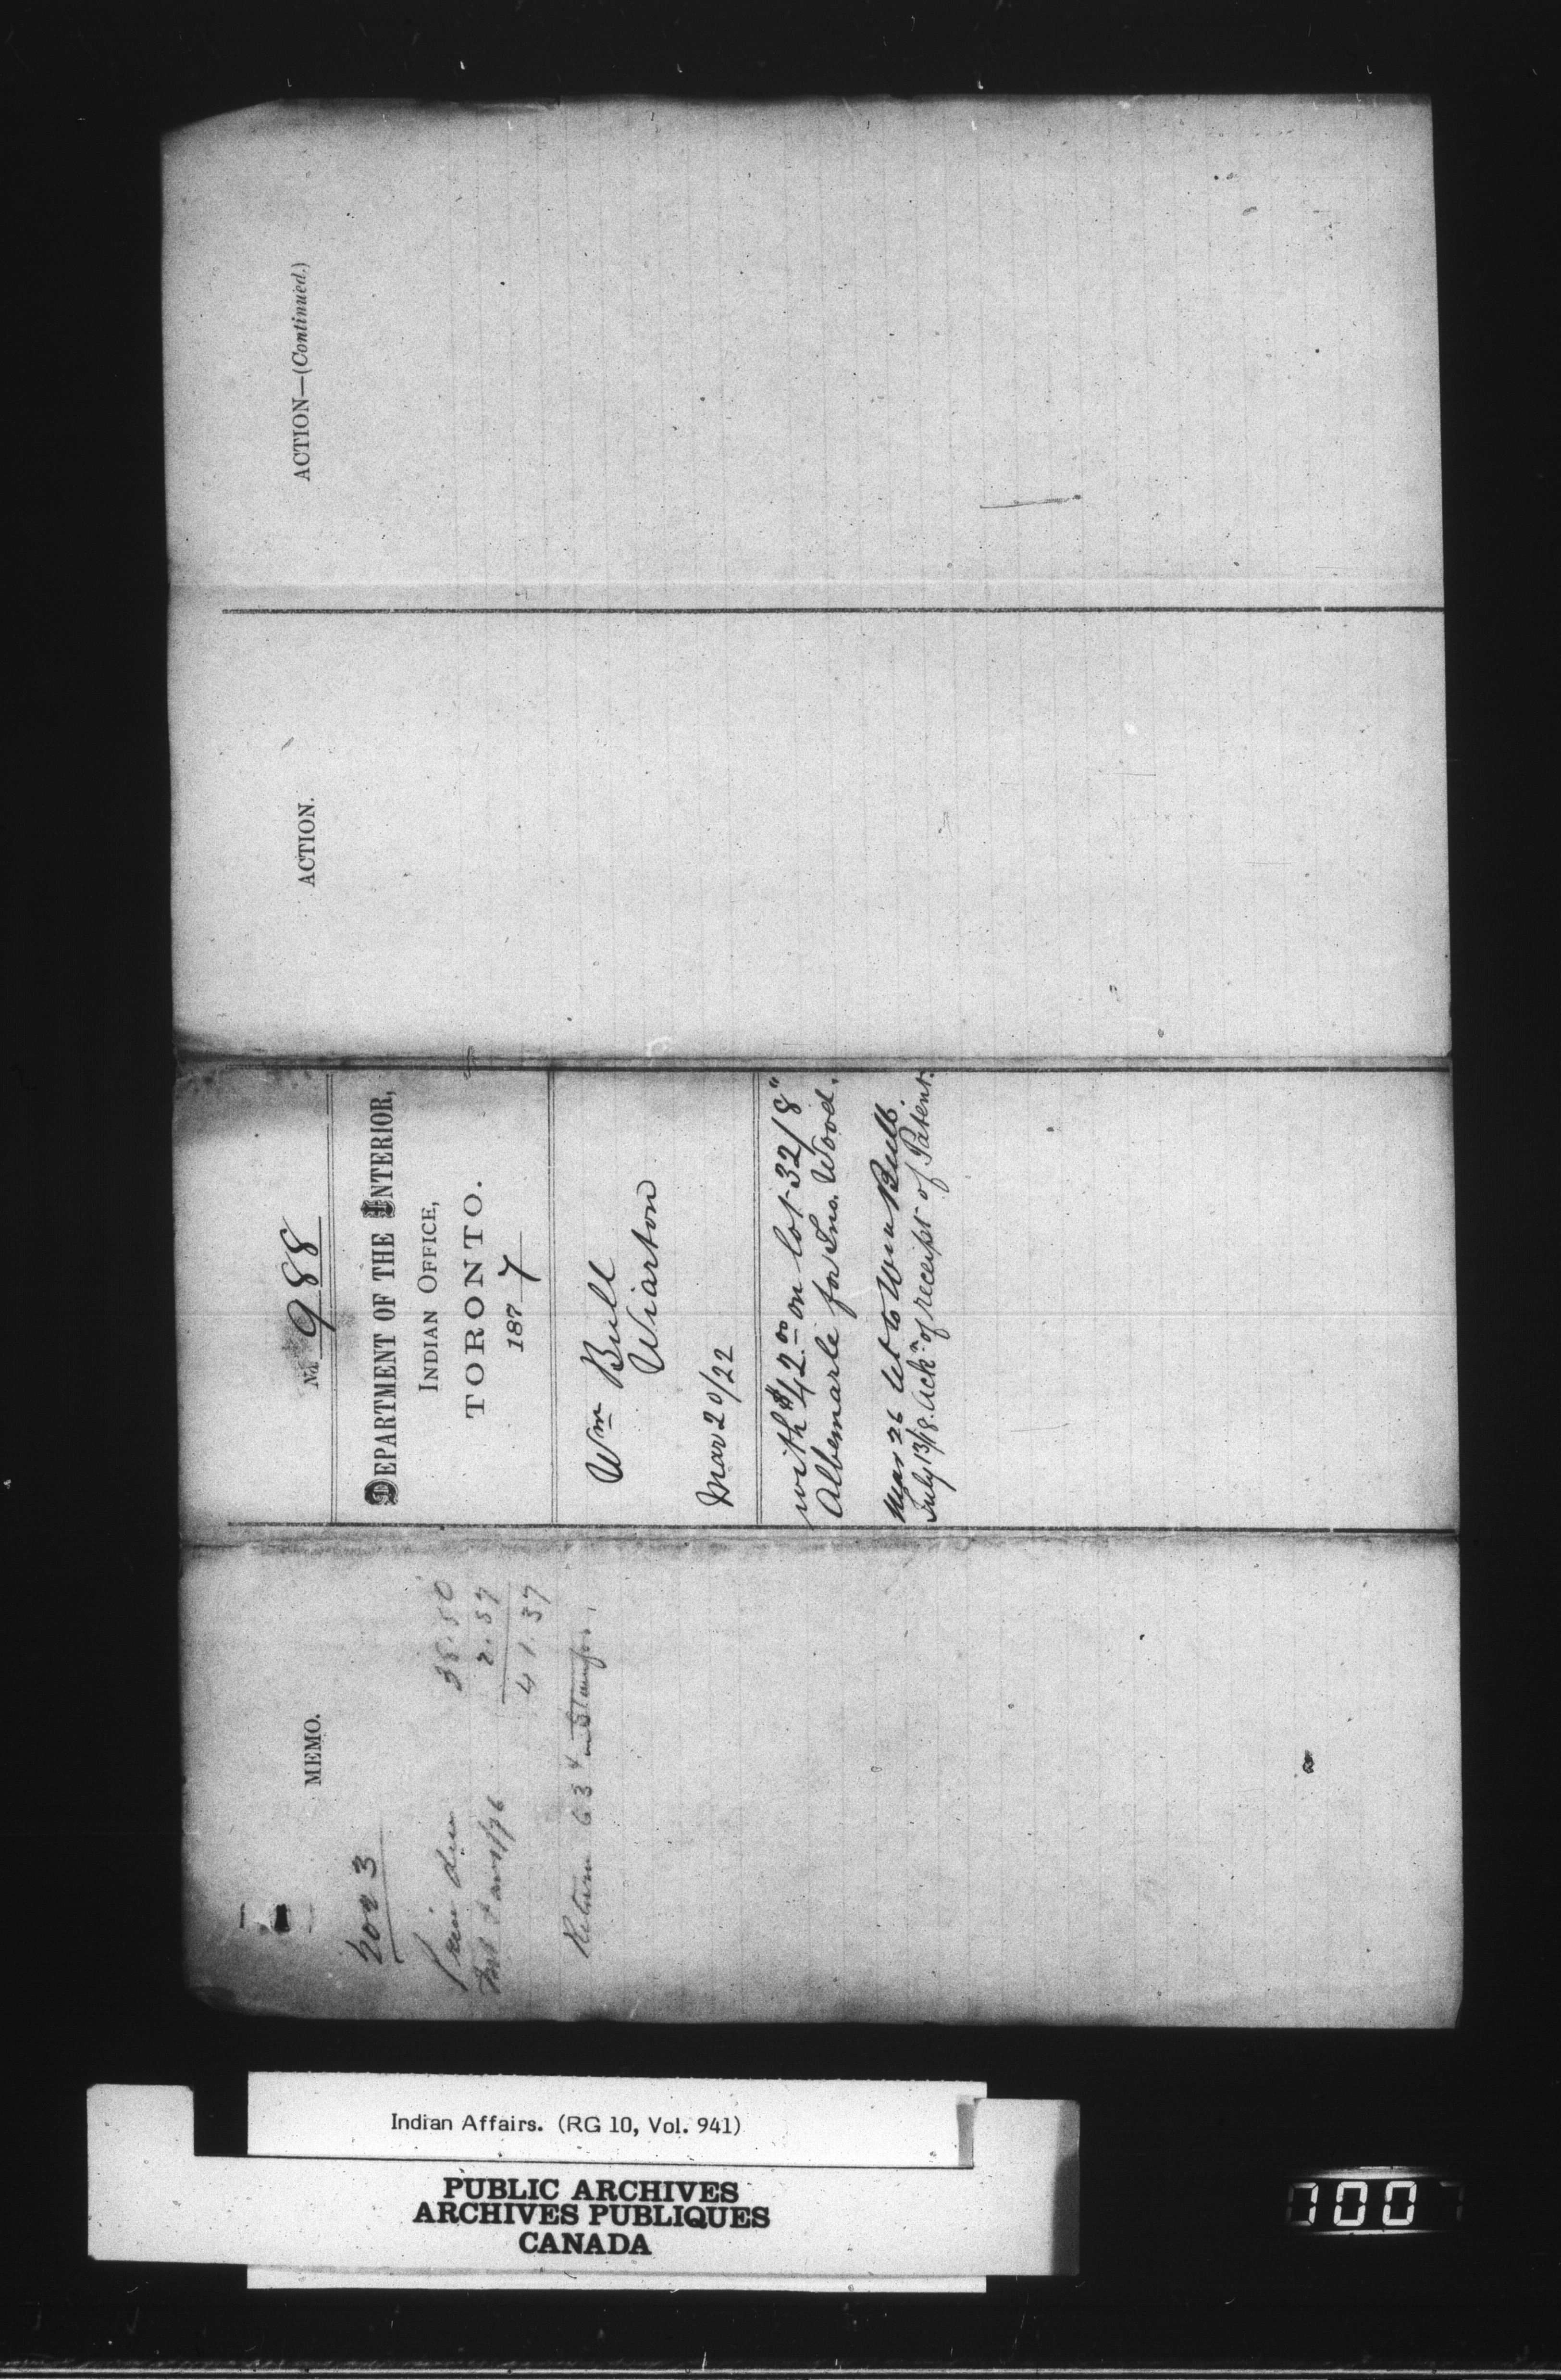 MEMO.
2023
Prin due 38.80
Int Jany/76 2.57
41.37
Return 63 ¢ in Stamps.
No. 988
DEPARTMENT OF THE INTERIOR,
INDIAN OFFICE,
TORONTO.
1877
Wm Bull
Wiarton
Mar 20/22
with $42.00 on lot 32/8"
Albemarle for Jno. Wood.
Mar 26 let to Wm Bull.
July 13/18. Ackn of receipt of Patent.
ACTION.
ACTION—(Continued.)
Indian Affairs. (RG 10, Vol. 941)
PUBLIC ARCHIVES
ARCHIVES PUBLIQUES
CANADA